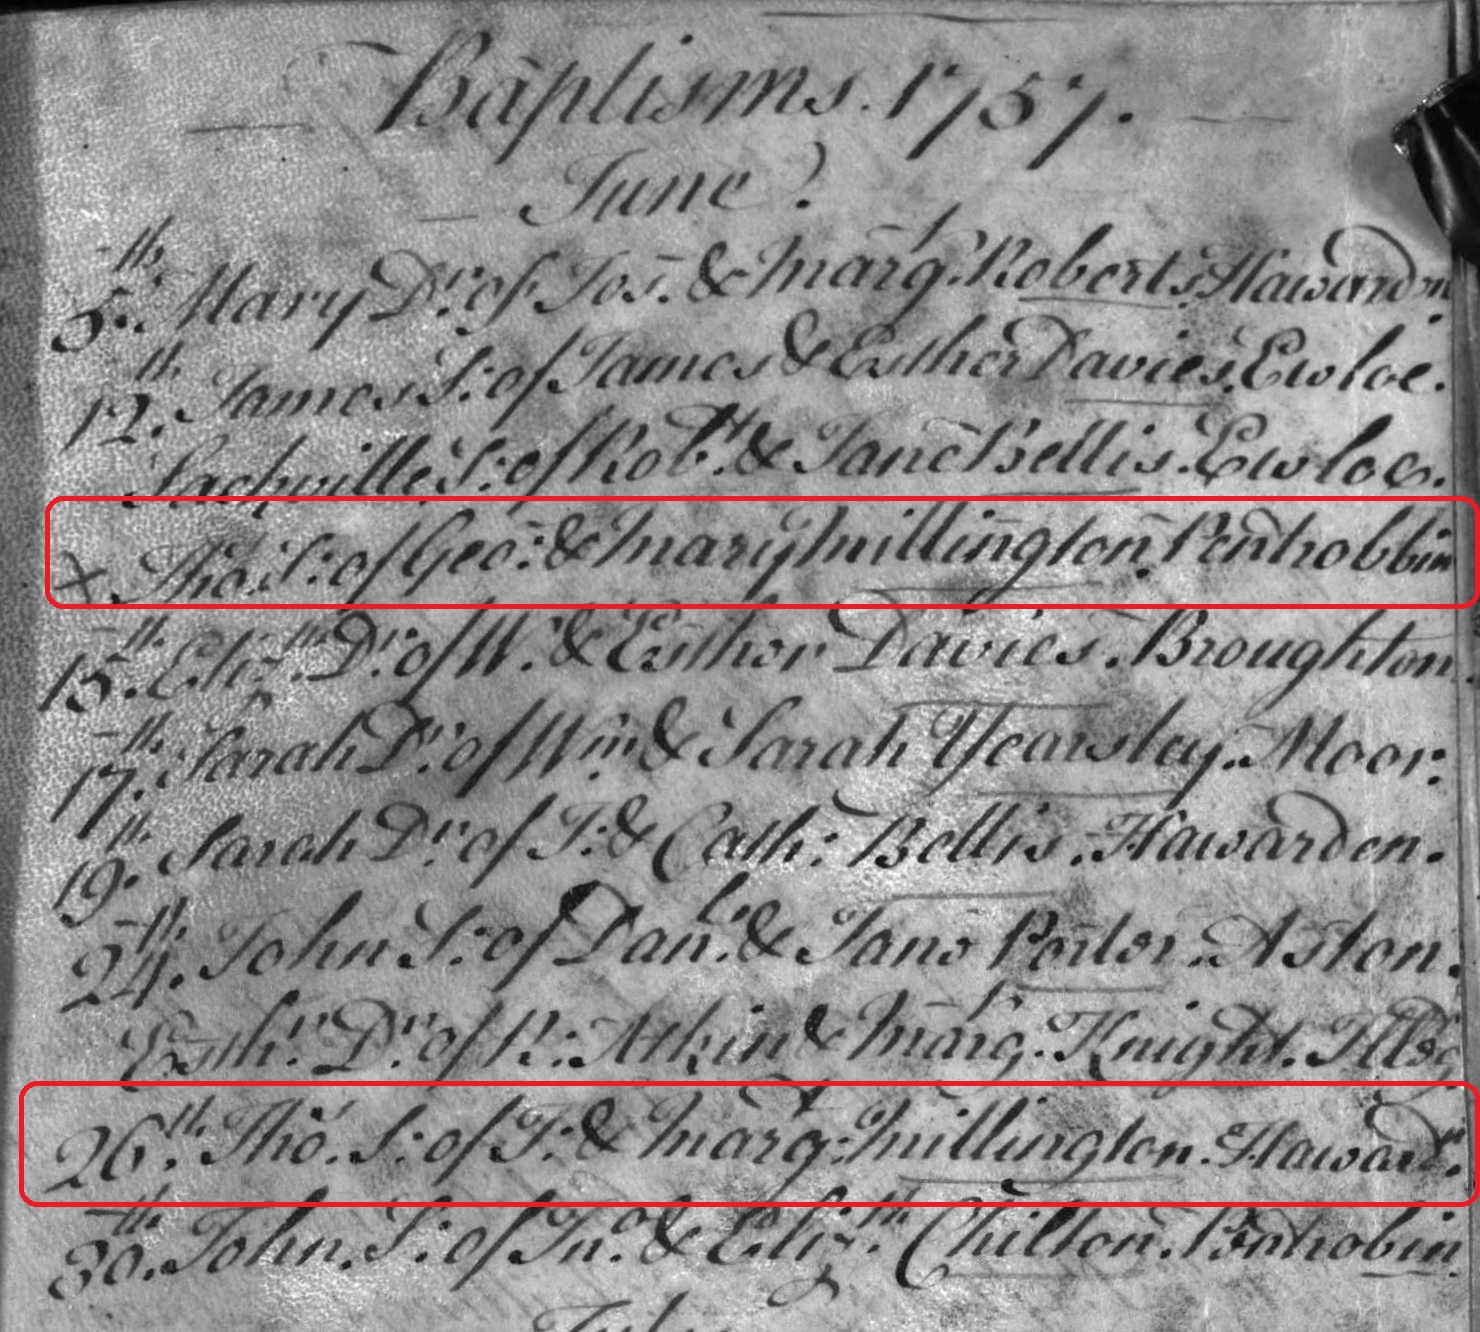 Baptisms. 1757.
June.
5th. Mary Dr. of Jos. & Marg.t Roberts. Hawardn
12th. James S. of James & Esther Davies. Ewloe.
Sackville S. of Rob.tt & Jane Bellis. Ewloe.
+. Tho. S. of Geo. & Mary Millington. Pentrobbin
15th. Eliz.th Dr. of W. & Esther Davies. Broughton.
17th. Sarah Dr. of Wm. & Sarah Yearsley. Moor.
19th. Sarah Dr. of J. & Cath: Bellis. Hawarden.
24th. John S. of Dan.l & Jane Porter. Aston.
Esth.r Dr. of R. Atkin & Marg.t Knight.
26th. Tho.s S. of J. & Marg.t Millington. Haward.n
30th. John. S. of Jn.o & Eliz.th Chilton. Pentrobin.
July